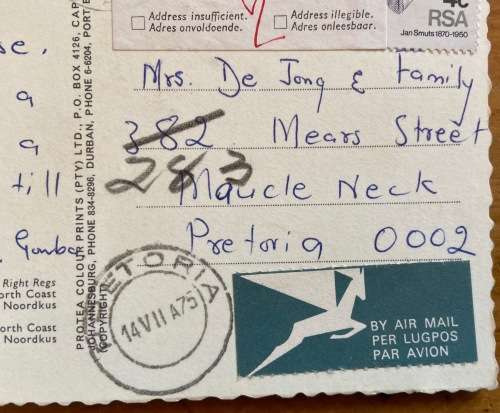 Address insufficient.
Adres onvoldoende.
Address illegible.
Adres onleesbaar.
4c
RSA
Jan Smuts 1870-1950
se.
a
a
till
Gomba
Mrs. De Jong & Family
382 Mears Street
283
Maucle Neck
Pretoria 0002
PROTEA COLOUR PRINTS (PTY) LTD., P.O. BOX 4126, CAP
JOHANNESBURG, PHONE 834-8296, DURBAN, PHONE 6-6204, PORT E
(COPYRIGHT)
Right Regs
orth Coast
Noordkus
orth Coast
Noordkus
ETORIA
14 VII A75
BY AIR MAIL
PER LUGPOS
PAR AVION